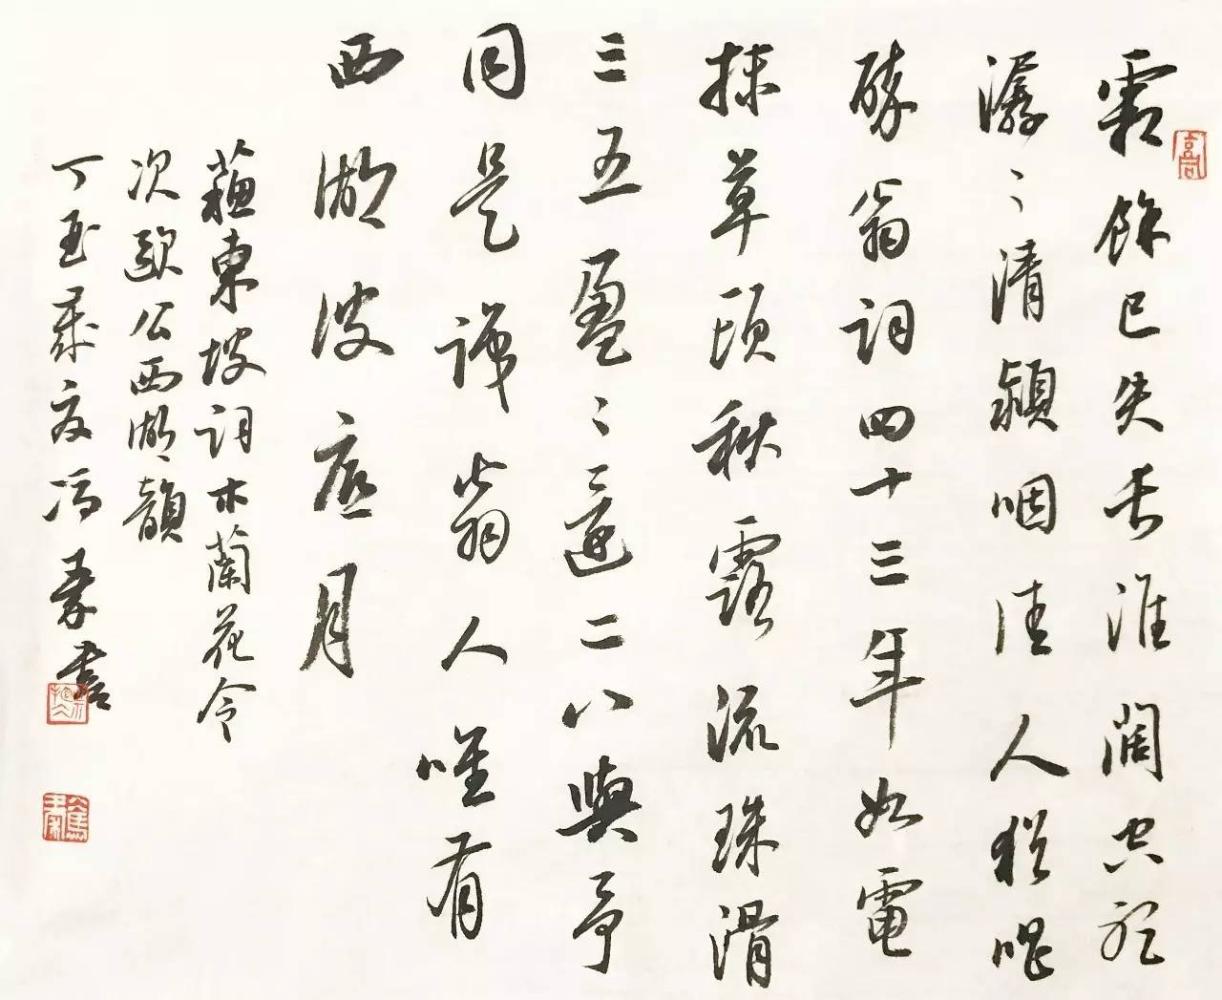 霜餘已失長淮闊空聽
潺〻清潁咽佳人猶唱
醉翁詞四十三年如電
抹草頭秋露流珠滑
三五盈〻還二八與予
同是識翁人唯有
西湖波底月
蘇東坡詞木蘭花令
次歐公西湖韻
丁歲夏馮書